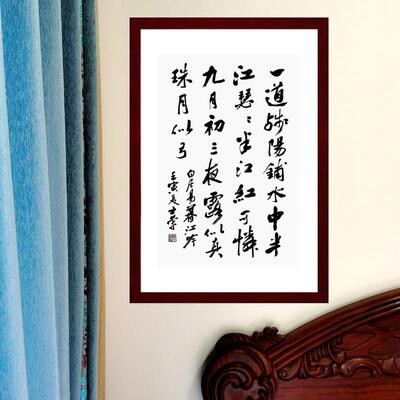 一道残陽鋪水中半
江瑟〻半江紅可憐
九月初三夜露似真
珠月似弓
白居易暮江吟
壬寅夏